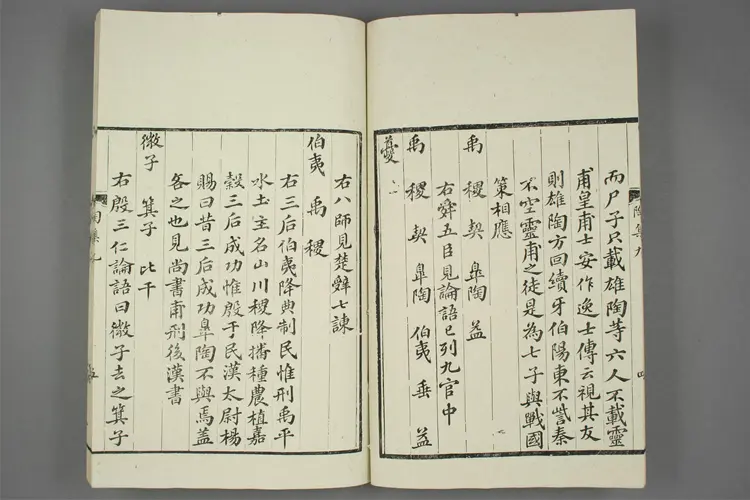 而尸子只載雄陶等六人不載靈
甫皇甫士安作逸士傳云視其友
則雄陶方回續牙伯陽東不訾秦
不空靈甫之徒是為七子與戰國
策相應
禹 稷 契 皐陶 益
右舜五臣見論語已列九官中
禹 稷 契 皐陶 伯夷 垂 益
夔
右八師見楚辭七諫
伯夷 禹 稷
右三后伯夷降典制民惟刑禹平
水土主名山川稷降播種農植嘉
穀三后成功惟殷于民漢太尉楊
賜曰昔三后成功皐陶不與焉蓋
吝之也見尚書甫刑後漢書
微子 箕子 比干
右殷三仁論語曰微子去之箕子
陶集九
四
陶集九
五